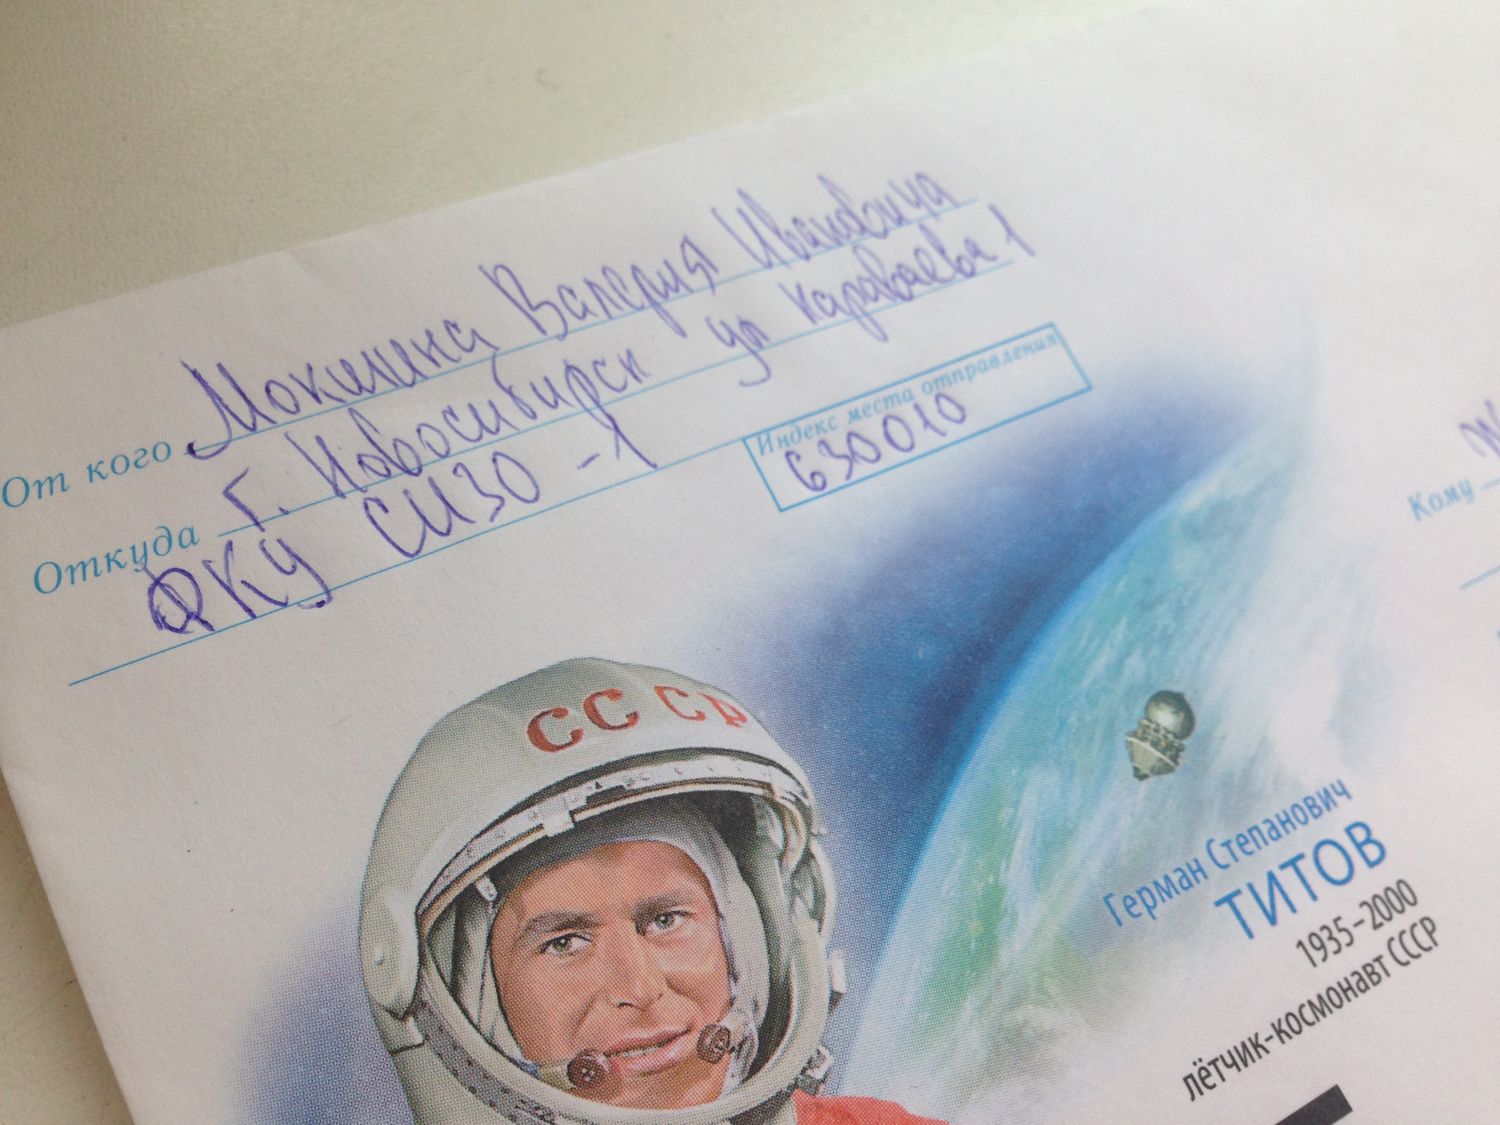 От кого Мокшина Валерия Ивановича
Откуда г. Новосибирск ул Караваева 1
ФКУ СИЗО-1
Индекс места отправления
630010
Кому
СССР
Герман Степанович
ТИТОВ
1935–2000
лётчик-космонавт СССР